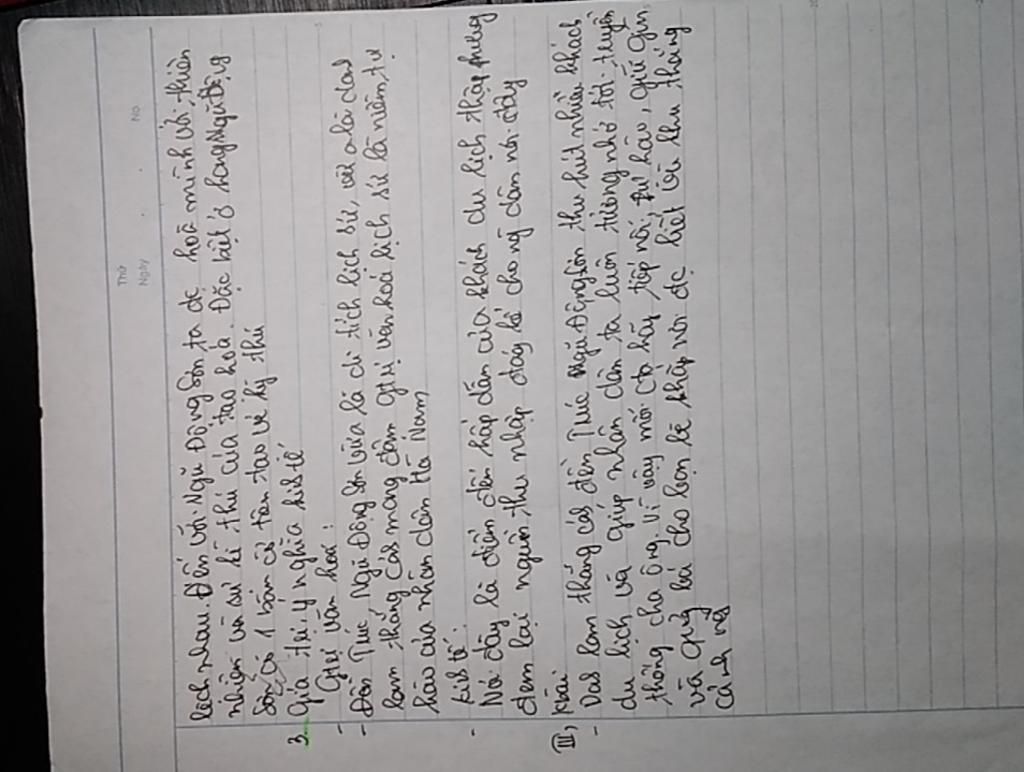 Thứ
Ngày
No.
lệch nhau. Đến với Ngũ Động Sơn ta đc hoà mình với thiên
nhiên và sự kì thú của tạo hoá. Đặc biệt ở hang Ngũ Động
Sơn có 1 bàn cờ tiên tạo vẻ kỳ thú
3. Giá trị, ý nghĩa kinh tế
- Gtrị văn hoá:
- Đền Trúc, Ngũ Động Sơn vừa là di tích lịch sử, vừa là danh
lam thắng cảnh mang đậm gtrị văn hoá lịch sử là niềm tự
hào của nhân dân Hà Nam
- kinh tế:
Nơi đây là điểm đến hấp dẫn của khách du lịch thập phương
đem lại nguồn thu nhập đáng kể cho ng dân nơi đây
III, Kbài
- Danh lam thắng cảnh đền Trúc Ngũ Động Sơn thu hút nhiều khách
du lịch và giúp nhân dân ta luôn tưởng nhớ tới truyền
thống cha ông. Vì vậy mỗi cta hãy tiếp nối, tự hào, giữ gìn,
và quảng bá cho bạn bè khắp nơi đc biết về khu thắng
cảnh này